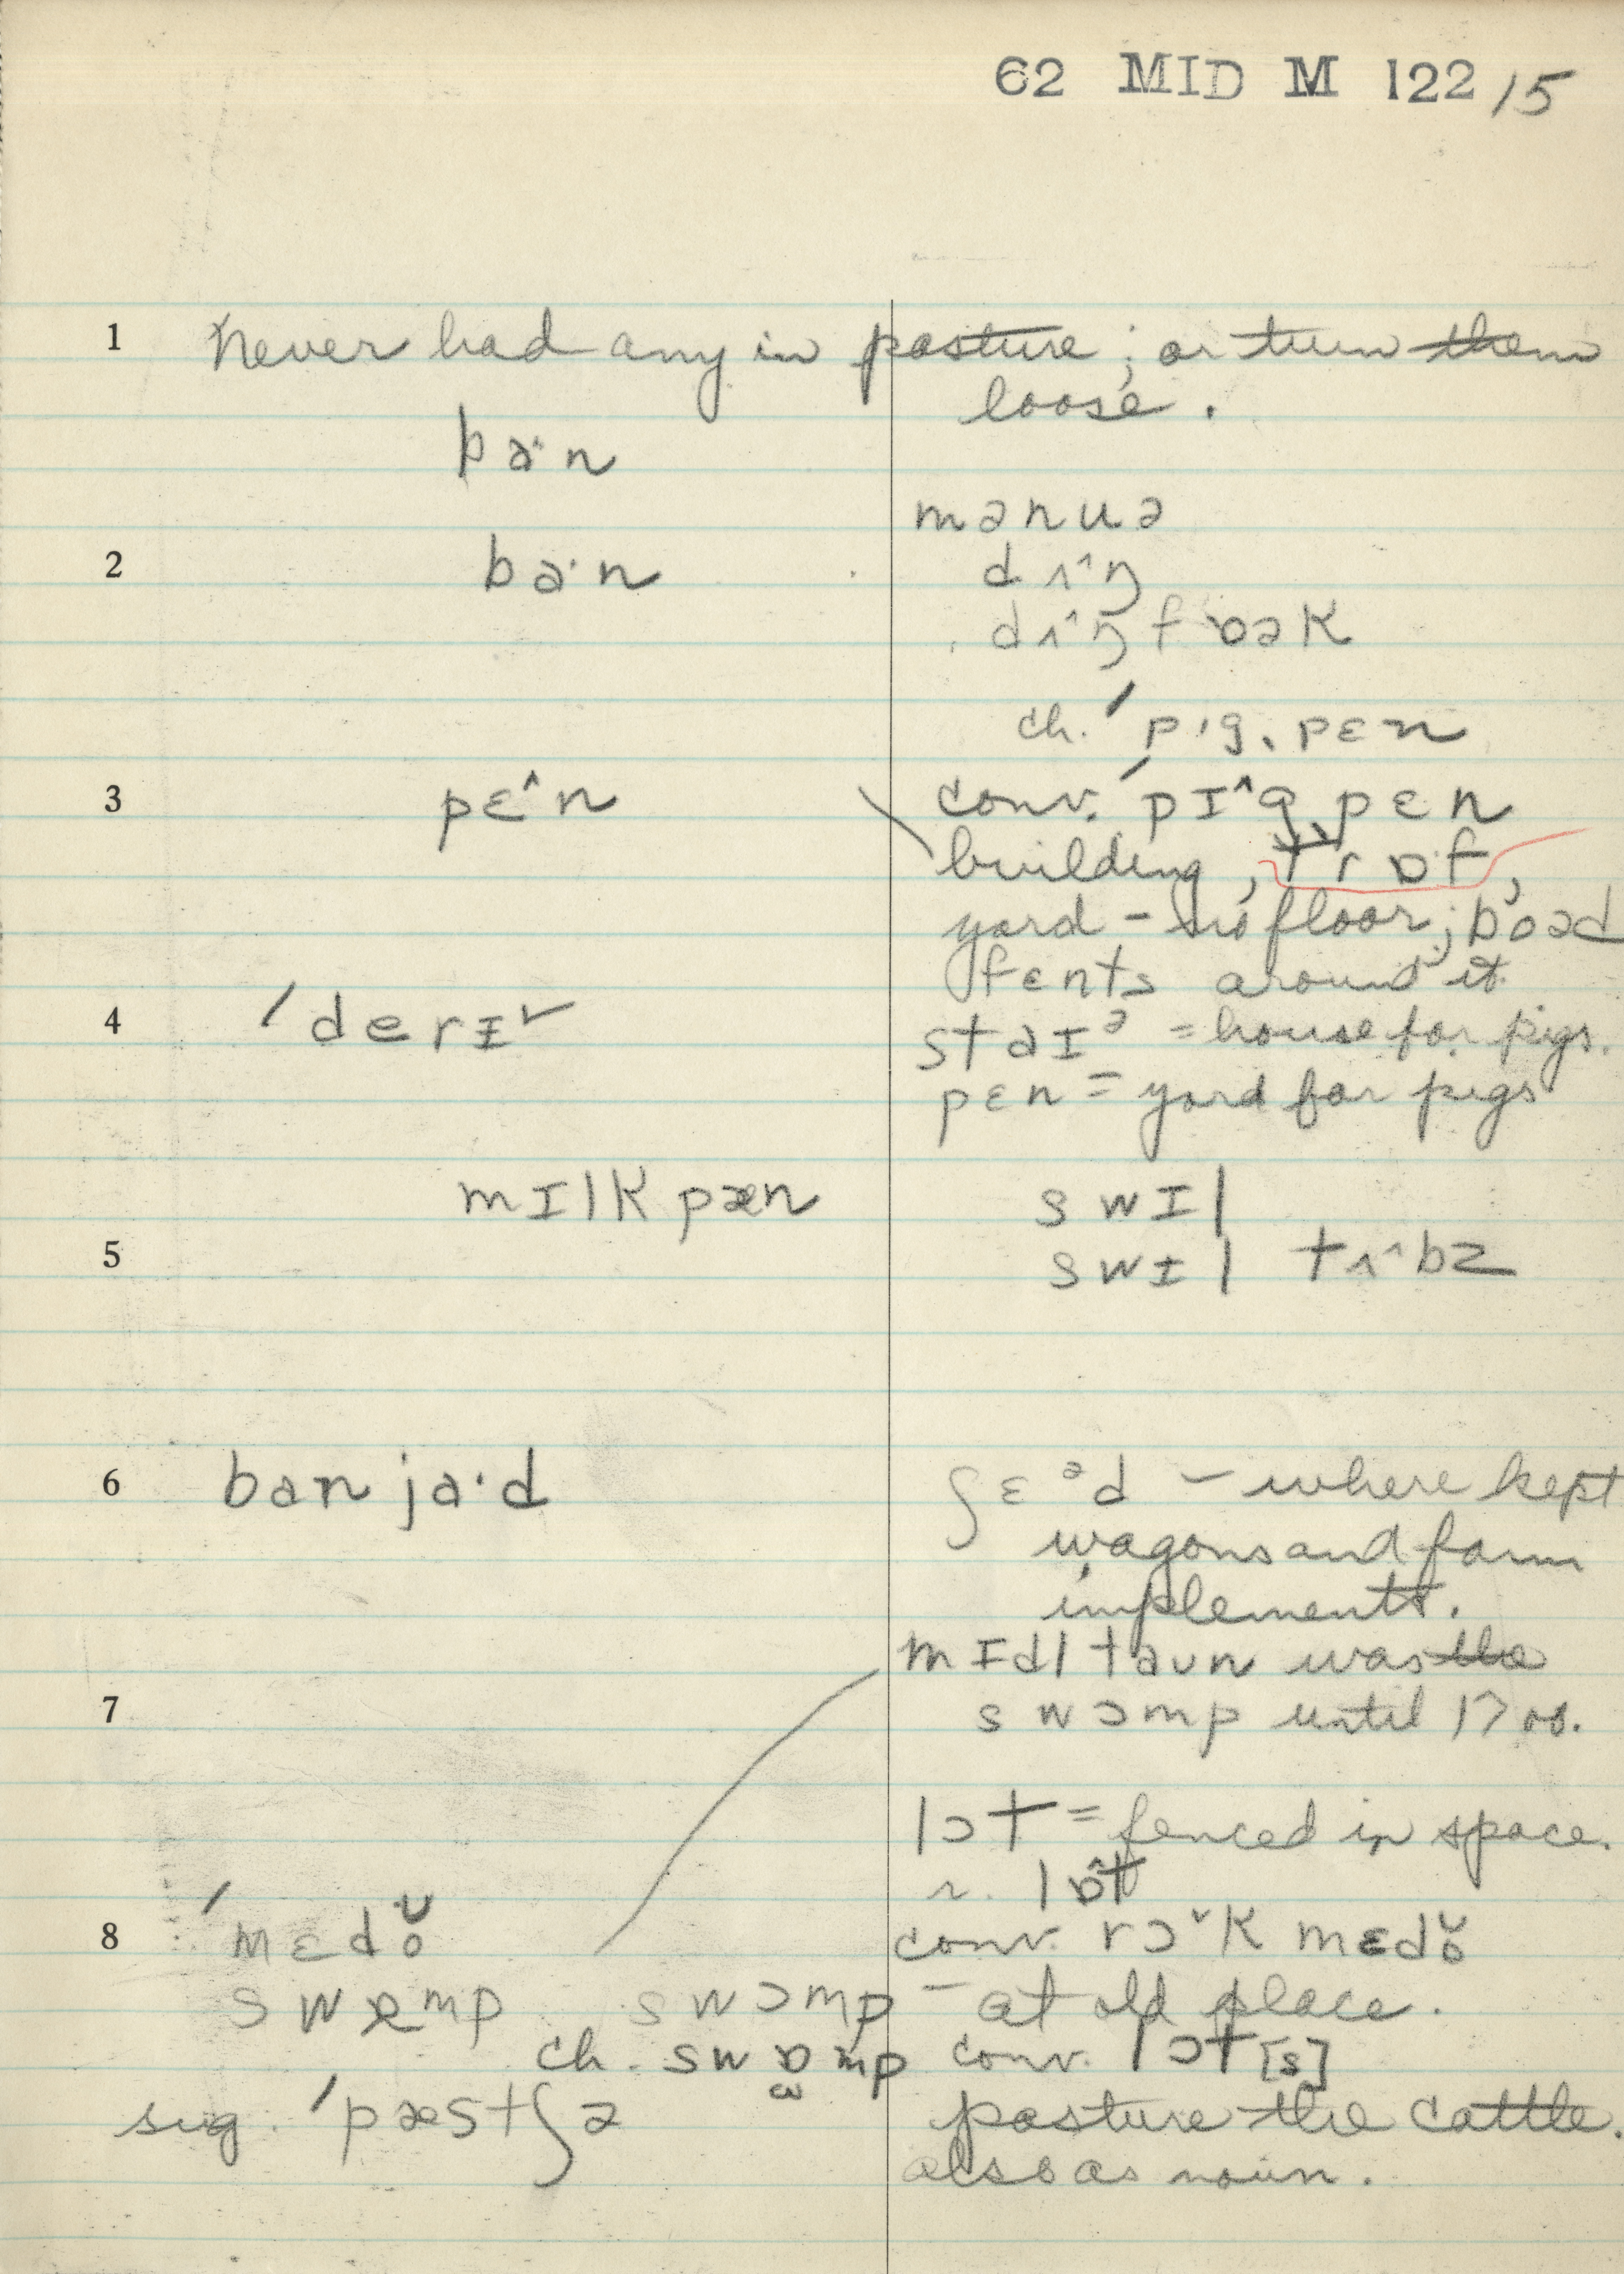 62 MID M 122/15
1 Never had any in pasture; or turn them
loose.
ba·n
mənuə
2 ba·n
dʌ^ŋ
dʌ^ŋ fɒək
ch. 'pɪg,pɛn
3 pɛ^n
conv. 'pɪ^g,pɛn
building, trɒf,
yard - no floor; boəd
fɛnts around it
4 'derɪ˅
staɪᵊ = house for pigs.
pɛn = yard for pigs
mɪlk pæn
swɪl
5 swɪl tʌ^bz
6 ban ja·d
ʃɛᵊd - where kept
wagons and farm
implements.
mɪdltaun was the
7 swɔmp until 1700.
lɔt = fenced in space.
r. lɒ^t
8 'mɛdo˅
conv. rɔ˅k mɛdo˅
swɐmp swɔmp - at old place.
ch. swɒmp conv. lɔt[s]
sug. 'pæstʃə
pasture the cattle.
also as noun.